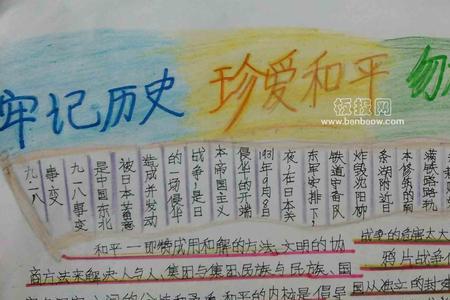 牢记历史 珍爱和平 勿
板报网
www.banbaow.com
九一八
事变
九一八事变
是中国东北
被日本蓄意
造成并发动
的一场侵华
战争,是日
本帝国主义
侵华的开端
1931年9月18日
夜,在日本关
东军安排下,
铁道守备队
炸毁沈阳柳
条湖附近日
本修筑的南
满铁路路轨
和平一即赞成用和解的方法、文明的协
商方法来解决人与人、集团与集团、民族与民族、国
和平的内核是倡导
战争的危害太大
鸦片战争
国从独立的封建